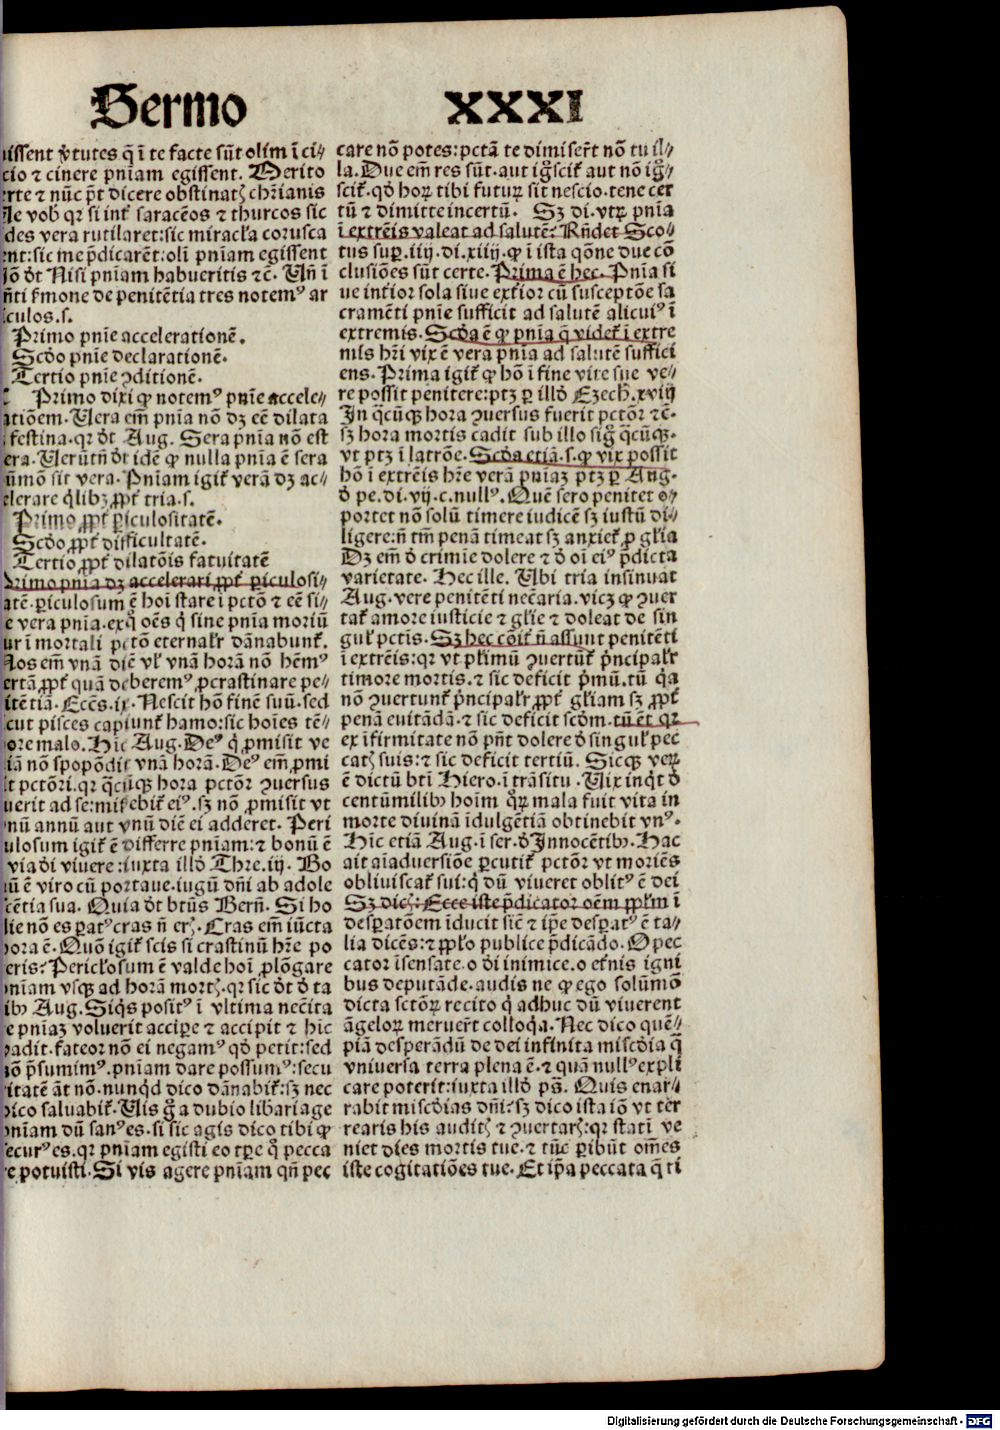 Sermo XXXI
issent v̓tutes q̄ ī te facte sūt olim ī ci⸗
cio ⁊ cinere pn̄iam egissent. Merito
rte ⁊ nūc pn̄t dicere obstinatꝭ chr̄ianis
e vob̓ qꝛ si int̓ saracēos ⁊ thurcos sic
des vera rutilaret: sic miracl̓a corusca
nt: sic me p̄dicarēt: oli pn̄iam egissent
Iō d̓t Nisi pn̄iam habueritis ⁊ē. Un̄ ī
n̄ti s̓mone de penitētia tres notemꝰ ar
culos.s.
Primo pn̄ie accelerationē.
Scd̓o pn̄ie declarationē.
Tertio pn̄ie ꝯditionē.
Primo dixi ꝙ notemꝰ pn̄ie accele⸗
atiōem. Uera em̄ pn̄ia nō dꝫ eē dilata
festina. qꝛ d̓t Aug. Sera pn̄ia nō est
era. Uerūtn̄ d̓t idē ꝙ nulla pn̄ia ē sera
ūmō sit vera. Pn̄iam igit̓ verā dꝫ ac⸗
elerare q̓libꝫ ꝓpt̓ tria.s.
Primo ꝓpt̓ ꝑiculositatē.
Scd̓o ꝓpt̓ difficultatē.
Tertio ꝓpt̓ dilatōis fatuitatē
Primo pn̄ia dꝫ accelerari ꝓpt̓ ꝑiculosi⸗
atē. ꝑiculosum ē hoī stare ī pctō ⁊ eē si⸗
e vera pn̄ia. exq̓ oēs q̓ sine pn̄ia moriū
ur ī mortali pctō eternal̓r dānabunt̓.
Nos em̄ vnā diē vl̓ vnā horā nō hēmꝰ
ertā ꝓpt̓ quā deberemꝰ ꝓcrastinare pe⸗
itētiā. Ecc̄s. ix. Nescit hō finē suū. sed
cut pisces capiunt̓ hamo: sic hoīes tē⸗
ore malo. Hīc Aug. Deꝰ q̓ ꝓmisit ve
iā nō spopōdit vnā horā. Deꝰ em̄ ꝓmi
it pctōri. qꝛ qn̄cūqꝫ hora pctōr ꝯuersus
uerit ad se: mis̓ebit̓ eiꝰ. sꝫ nō ꝓmisit vt
nū annū aut vnū diē ei adderet. Peri
ulosum igit̓ ē differre pn̄iam: ⁊ bonū ē
via di viuere: iuxta ill̓d Thre. iij. Bo
ū ē viro cū portaue. iugū dn̄i ab adole
cētia sua. Quia d̓t btūs Bern̄. Si ho
ie nō es ꝑatꝰ cras n̄ er̓. Cras em̄ iūcta
ora ē. Quō igit̓ scis si crastinū hr̄e po
eris? Pericl̓osum ē valde hoī ꝓlōgare
nīam vsqꝫ ad horā mortꝭ. qꝛ sic d̓t d̓ ta
ibꝫ Aug. Siq̓s positꝰ ī vltima nec̄ita
e pn̄iaꝫ voluerit accipe ⁊ accipit ⁊ hic
vadit. fateor nō ei negamꝰ qd̓ petit: sed
ō p̄sumimꝰ. pn̄iam dare possumꝰ: secu
ritatē āt nō. nunq̓d dico dānabit̓: sꝫ nec
ico saluabit̓. Uis g̓ a dubio libari age
nīam dū sanꝰ es. si sic agis dico tibi ꝙ
ecurꝰ es. qꝛ pn̄iam egisti eo tꝑe q̓ pecca
e potuisti. Si vis agere pn̄iam qn̄ pec
care nō potes: pctā te dimiser̄t nō tu il⸗
la. Due em̄ res sūt. aut ig̓scit̓ aut nō ig̓⸗
scit̓. qd̓ hoꝝ tibi futuꝝ sit nescio. tene cer
tū ⁊ dimitte incertū. Sꝫ di. vtꝝ pn̄ia
ī extrēis valeat ad salutē? Rn̄det Sco⸗
tus suꝑ. iiij. di. xiiij. ꝙ ī ista qōne due cō
clusiōes sūt certe. Prima ē hec. Pn̄ia si
ue int̓ior sola siue ext̓ior cū susceptōe sa
cramēti pn̄ie sufficit ad salutē alicuiꝰ ī
extremis. Scd̓a ē ꝙ pn̄ia q̄ videt̓ ī extre
mis hr̄i vix ē vera pn̄ia ad salutē suffici
ens. Prima igit̓ ꝙ hō ī fine vite sue ve⸗
re possit penitere: ptꝫ ꝑ ill̓d Ezech̓. xviij
In q̄cūqꝫ hora ꝯuersus fuerit pctōr ⁊ē.
sꝫ hora mortis cadit sub illo sig̓ q̄cūqꝫ.
vt ptꝫ ī latrōe. Scd̓a etiā.s. ꝙ vix possit
hō ī extrēis hr̄e verā pn̄iaꝫ ptꝫ ꝑ Aug.
d̓ pe. di. vij. c. nullꝰ. Quē sero penitet o⸗
portet nō solū timere iudicē sꝫ iustū di⸗
ligere: n̄ tm̄ penā timeat sꝫ anxiet̓ ꝓ gl̓ia
Dꝫ em̄ d̓ crimīe dolere ⁊ d̓ oī eiꝰ p̄dicta
varietate. Hec ille. Ubi tria insinuat
Aug. vere penitēti nec̄aria. vicꝫ ꝙ ꝯuer
tat̓ amore iusticie ⁊ gl̓ie ⁊ doleat de sin
gul̓ pctis. Sꝫ hec cōit̓ n̄ assunt penitēti
ī extrēis: qꝛ vt pl̓imū ꝯuertūt̓ p̓ncipal̓r
timore mortis. ⁊ sic deficit p̓mū. tū q̓a
nō ꝯuertunt̓ p̓ncipal̓r ꝓpt̓ gl̓iam sꝫ ꝓpt̓
penā euitādā. ⁊ sic deficit scd̓m. tū ēt qꝛ
ex īfirmitate nō pn̄t dolere d̓ singul̓ pec
catꝭ suis: ⁊ sic deficit tertiū. Sicqꝫ veꝝ
ē dictū bt̄i Hiero. ī trāsitu. Uix inq̓t d̓
centūmilibꝫ hoīm q̓ꝝ mala fuit vita in
morte diuinā īdulgētiā obtinebit vnꝰ.
Hīc etiā Aug. ī ser. d̓ Innocētibꝫ. Hac
ait aīaduersiōe ꝑcutit̓ pctōr vt moriēs
obliuiscat̓ sui: q̓ dū viueret oblitꝰ ē dei
Sꝫ dicꝭ: Ecce iste p̄dicator oēm ꝓpl̓m ī
desꝑatōem īducit sicē ⁊ ip̄e desꝑatꝰ ē ta⸗
lia dicēs: ⁊ ꝓpl̓o publice p̄dicādo. O pec
cator īsensate. o d̓i inimice. o et̓nis igni
bus deputāde. audis ne ꝙ ego solūmō
dicta sctōꝝ recito q̓ adhuc dū viuerent
āgeloꝝ meruer̄t colloq̓a. Nec dico quē⸗
piā desperādū de dei infinita misc̄dia q̄
vniuersa terra plena ē. ⁊ quā nullꝰ expli
care poterit: iuxta ill̓d ps̄. Quis enar⸗
rabit misc̄dias dn̄i? sꝫ dico ista iō vt ter
rearis his auditꝭ ⁊ ꝯuertarꝭ: qꝛ statī ve
niet dies mortis tue. ⁊ tūc ꝑibūt om̄es
iste cogitatiōes tue. Et ip̄a peccata q̄ ti
Digitalisierung gefördert durch die Deutsche Forschungsgemeinschaft - DFG